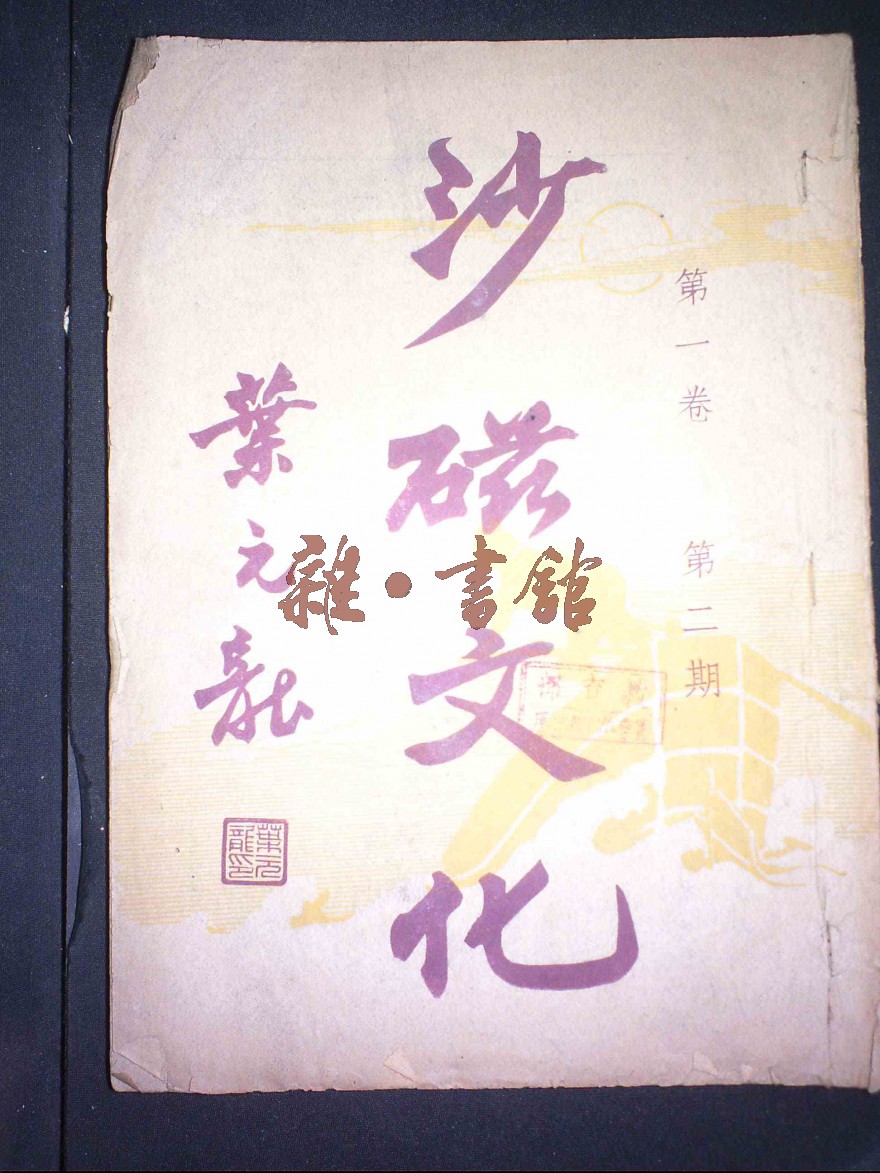 第一卷 第二期
沙磁文化
葉元龍
葉元龍印
雜·書館